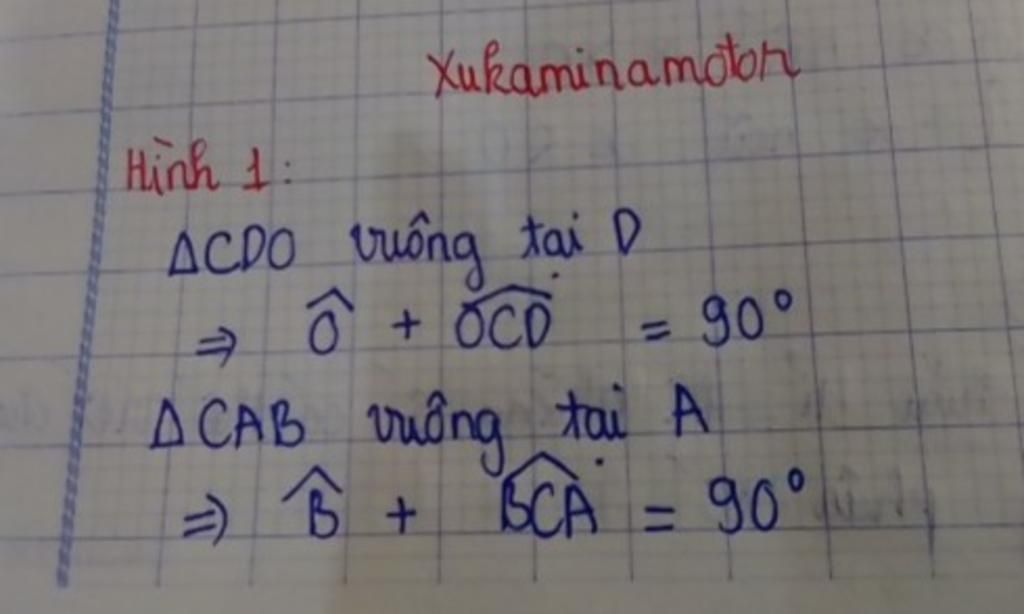 Xukaminamoton
Hình 1:
ΔCDO vuông tại D
⇒ Ô + \widehat{OCD} = 90°
ΔCAB vuông tại A
⇒ \widehat{B} + \widehat{BCA} = 90°